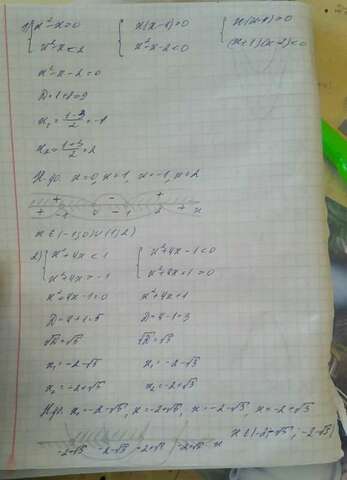 1) { x²-x≥0   { x(x-1)≥0   { x(x-1)≥0
{ x²-x<2   { x²-x-2<0   { (x+1)(x-2)<0
x²-x-2=0
D=1+8=9
x₁=(1-3)/2=-1
x₂=(1+3)/2=2
Н.ф. x=0, x=1, x=-1, x=2
+ - +
+ -1 0 - 1 2 + x
x∈(-1;0)∪(1;2)
2) { x²+4x<1   { x²+4x-1<0
{ x²+4x≥-1   { x²+4x+1≥0
x²+4x-1=0   x²+4x+1
D=4+1=5   D=4-1=3
√D=√5   √D=√3
x₁=-2-√5   x₁=-2-√3
x₂=-2+√5   x₂=-2+√3
Н.ф. x=-2-√5, x=-2+√5, x=-2-√3, x=-2+√3
x∈(-2-√5; -2-√3)
-2-√5 -2-√3 -2+√3 -2+√5 x